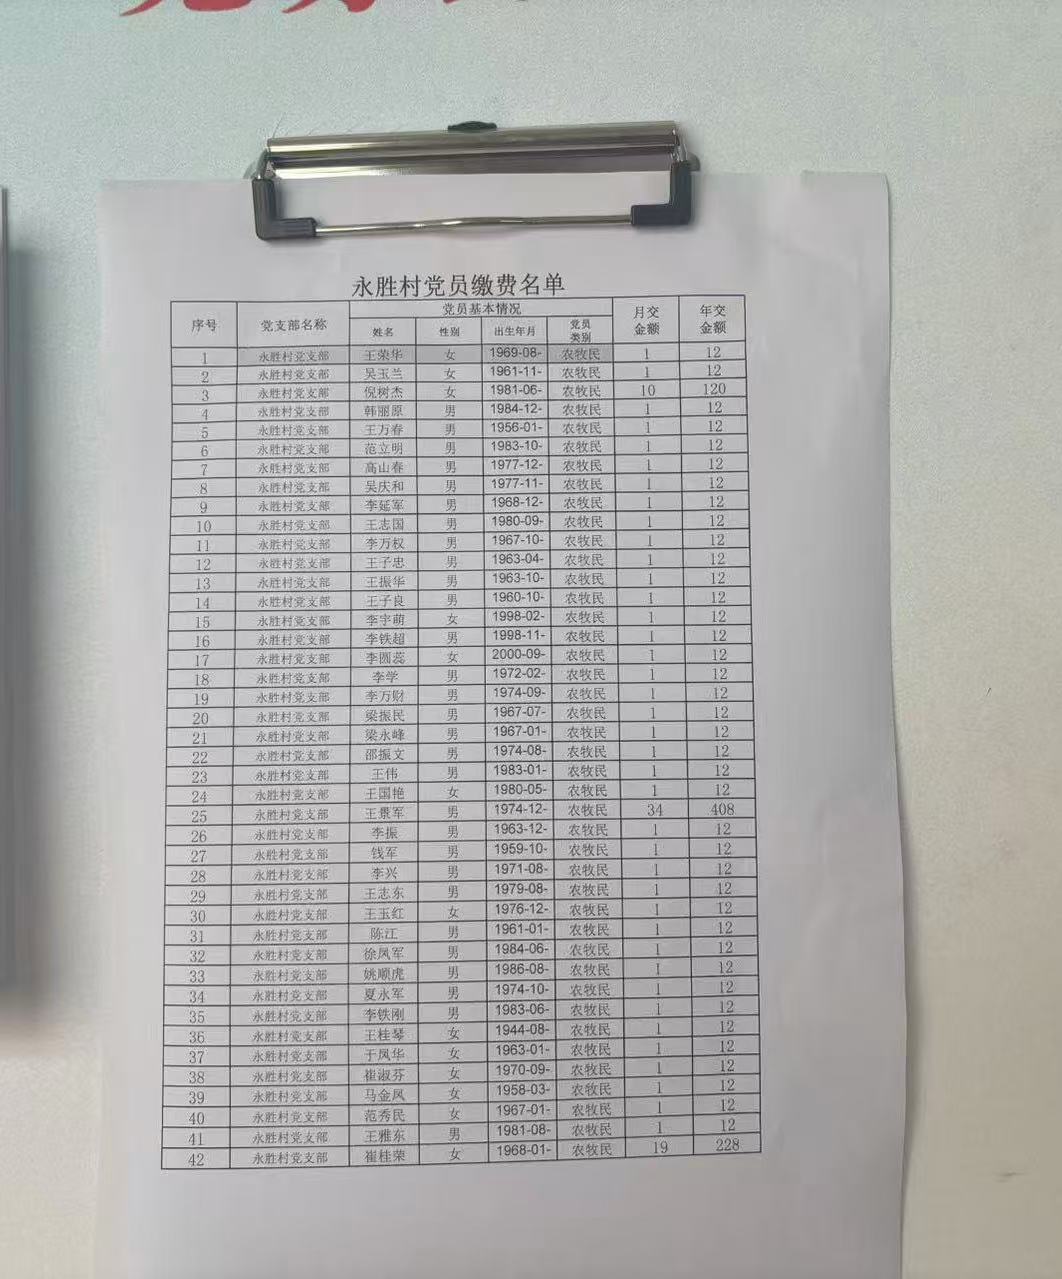 永胜村党员缴费名单
序号 党支部名称 党员基本情况 月交金额 年交金额
姓名 性别 出生年月 党员类别
1 永胜村党支部 王荣华 女 1969-08- 农牧民 1 12
2 永胜村党支部 吴玉兰 女 1961-11- 农牧民 1 12
3 永胜村党支部 倪树杰 女 1981-06- 农牧民 10 120
4 永胜村党支部 韩丽原 男 1984-12- 农牧民 1 12
5 永胜村党支部 王万春 男 1956-01- 农牧民 1 12
6 永胜村党支部 范立明 男 1983-10- 农牧民 1 12
7 永胜村党支部 高山春 男 1977-12- 农牧民 1 12
8 永胜村党支部 吴庆和 男 1977-11- 农牧民 1 12
9 永胜村党支部 李延军 男 1968-12- 农牧民 1 12
10 永胜村党支部 王志国 男 1980-09- 农牧民 1 12
11 永胜村党支部 李万权 男 1967-10- 农牧民 1 12
12 永胜村党支部 王子忠 男 1963-04- 农牧民 1 12
13 永胜村党支部 王振华 男 1963-10- 农牧民 1 12
14 永胜村党支部 王子良 男 1960-10- 农牧民 1 12
15 永胜村党支部 李宇萌 女 1998-02- 农牧民 1 12
16 永胜村党支部 李铁超 男 1998-11- 农牧民 1 12
17 永胜村党支部 李圆蕊 女 2000-09- 农牧民 1 12
18 永胜村党支部 李学 男 1972-02- 农牧民 1 12
19 永胜村党支部 李万财 男 1974-09- 农牧民 1 12
20 永胜村党支部 梁振民 男 1967-07- 农牧民 1 12
21 永胜村党支部 梁永峰 男 1967-01- 农牧民 1 12
22 永胜村党支部 邵振文 男 1974-08- 农牧民 1 12
23 永胜村党支部 王伟 男 1983-01- 农牧民 1 12
24 永胜村党支部 王国艳 女 1980-05- 农牧民 1 12
25 永胜村党支部 王景军 男 1974-12- 农牧民 34 408
26 永胜村党支部 李振 男 1963-12- 农牧民 1 12
27 永胜村党支部 钱军 男 1959-10- 农牧民 1 12
28 永胜村党支部 李兴 男 1971-08- 农牧民 1 12
29 永胜村党支部 王志东 男 1979-08- 农牧民 1 12
30 永胜村党支部 王玉红 女 1976-12- 农牧民 1 12
31 永胜村党支部 陈江 男 1961-01- 农牧民 1 12
32 永胜村党支部 徐凤军 男 1984-06- 农牧民 1 12
33 永胜村党支部 姚顺虎 男 1986-08- 农牧民 1 12
34 永胜村党支部 夏永军 男 1974-10- 农牧民 1 12
35 永胜村党支部 李铁刚 男 1983-06- 农牧民 1 12
36 永胜村党支部 王桂琴 女 1944-08- 农牧民 1 12
37 永胜村党支部 于凤华 女 1963-01- 农牧民 1 12
38 永胜村党支部 崔淑芬 女 1970-09- 农牧民 1 12
39 永胜村党支部 马金凤 女 1958-03- 农牧民 1 12
40 永胜村党支部 范秀民 女 1967-01- 农牧民 1 12
41 永胜村党支部 王雅东 男 1981-08- 农牧民 1 12
42 永胜村党支部 崔桂荣 女 1968-01- 农牧民 19 228